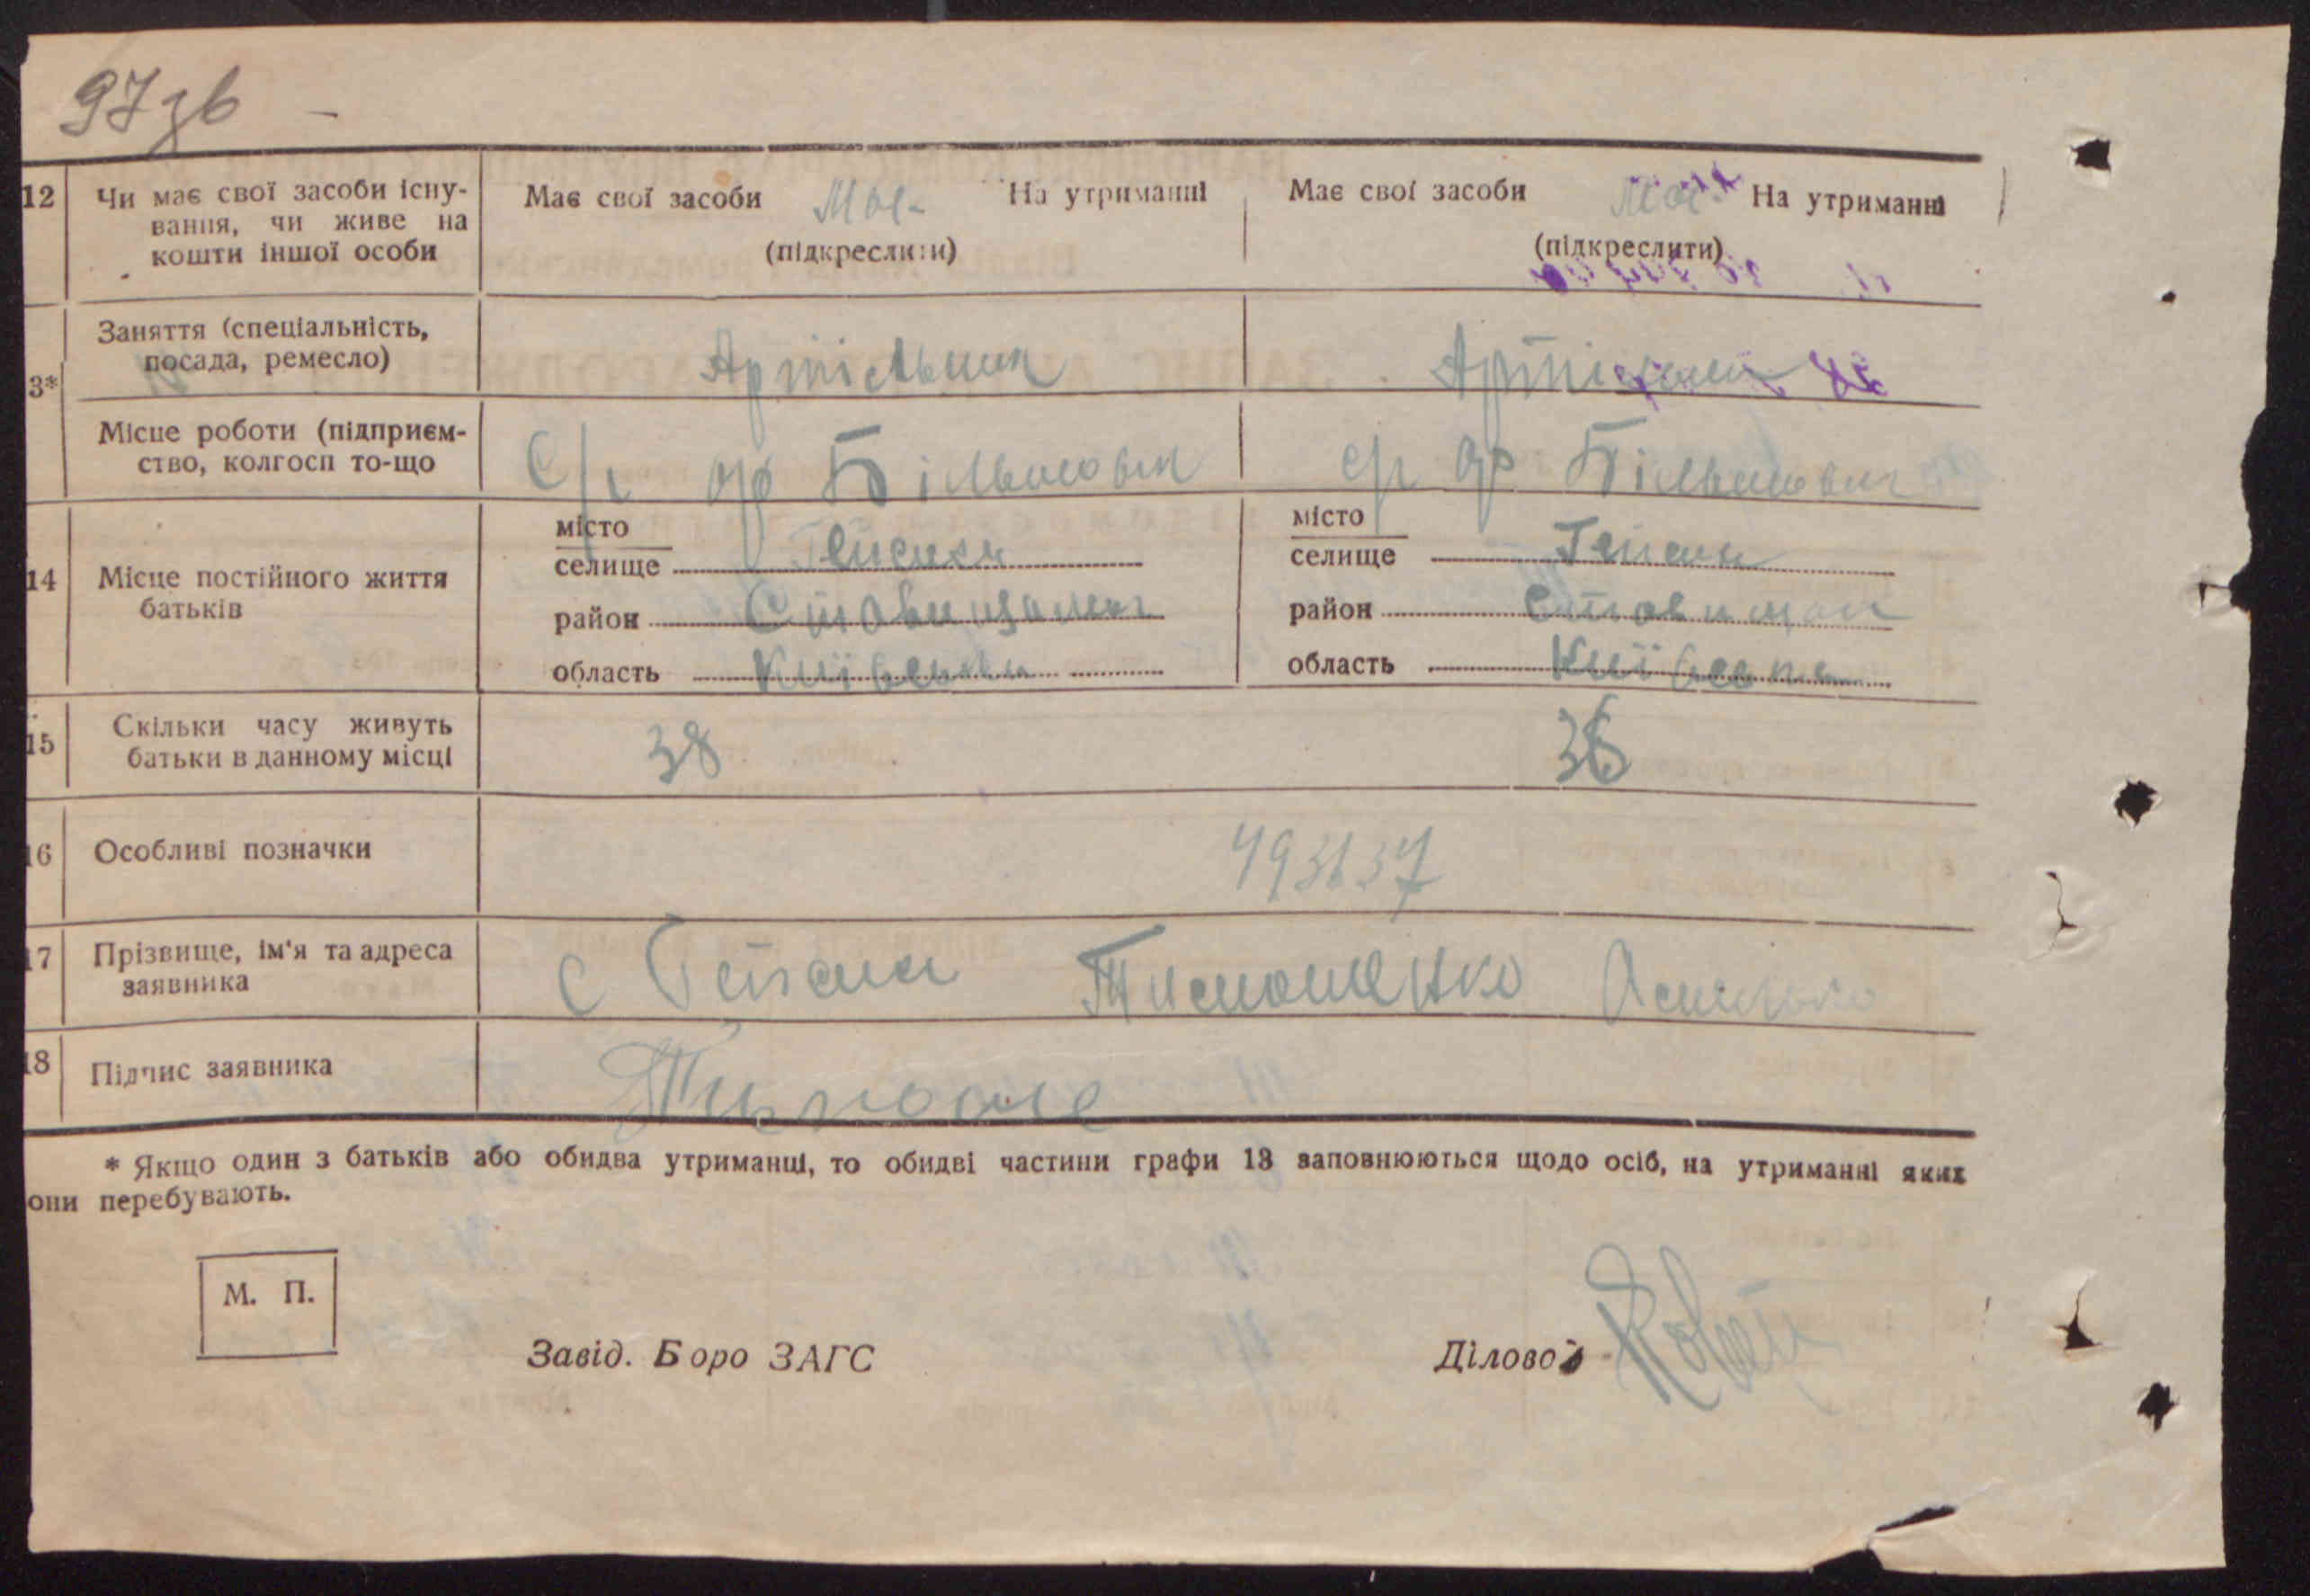 97зв
12 Чи має свої засоби існу-
вання, чи живе на
кошти іншої особи
Має свої засоби Має На утриманні
(підкреслити)
Має свої засоби Має На утриманні
(підкреслити)
3* Заняття (спеціальність,
посада, ремесло)
Артільник
Місце роботи (підприєм-
ство, колгосп то-що
С/г ар Більшовик
с/г ар Більшовик
14 Місце постійного життя
батьків
місто
селище Гейсихи
район Ставищанськ
область Київська
місто
селище
район Ставищан
область Київська
15 Скільки часу живуть
батьки в данному місці
38
36
16 Особливі позначки
493637
17 Прізвище, ім'я та адреса
заявника
с Тимошенко
18 Підпис заявника
* Якщо один з батьків або обидва утриманці, то обидві частини графи 13 заповнюються щодо осіб, на утриманні яких
они перебувають.
М. П.
Завід. Боро ЗАГС
Діловод